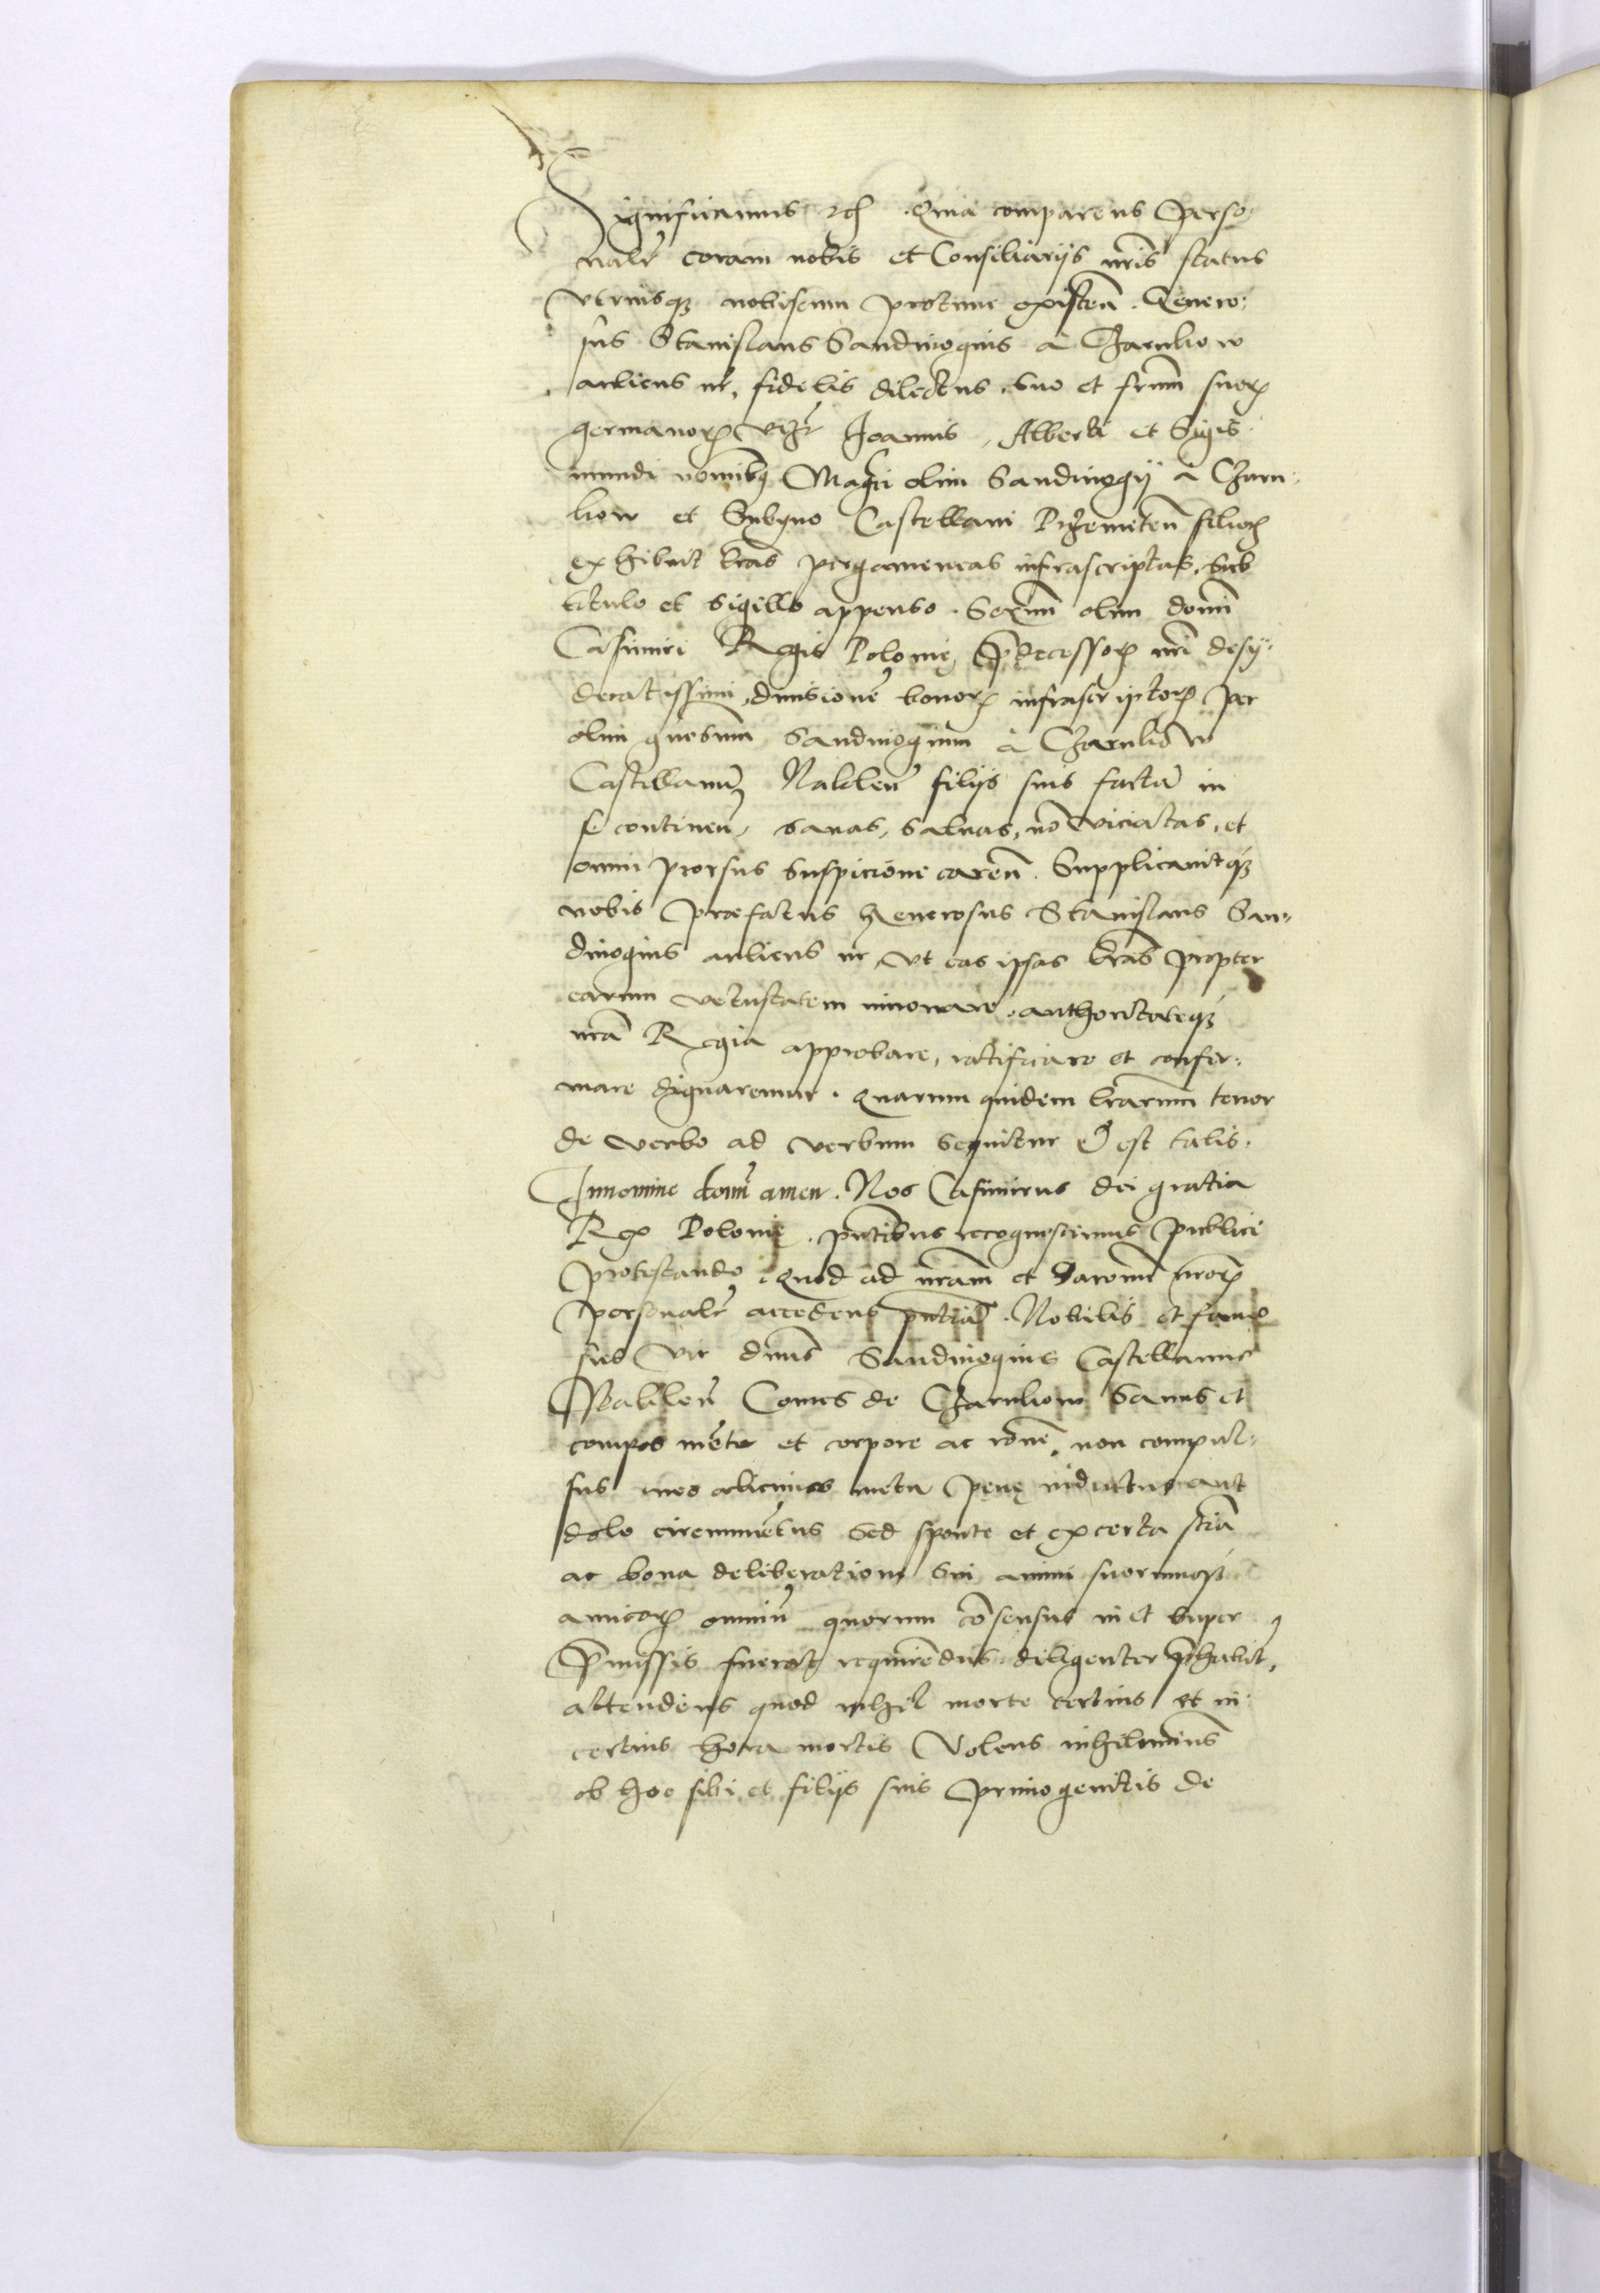 Significamus etc. Quia comparens perso¬
nalr coram nobis et Consiliarijs nris status
vtriusq nobiscum protunc existen. Genero¬
sus Stanislaus Sandiuogius à Czarnkow
aulicus nr, fidelis dilectus, suo et frum suor
germanor vizt Joannis, Alberti et Sigis¬
mundi nomibq Magci olim Sandiuogij à Czarn¬
kow et Castellani Przemeten filior
exhibuit lras pergameneas infrascriptas, sub
titulo et sigillo appenso. Sermi olim domi
Casimiri Regis Polonie, predecessor nri desy¬
deratissimi, diuisione bonor infrascriptor per
olim gnosum Sandiuogium à Czarnkow
Castellanu Naklen filijs suis facta in
se continen, sanas, saluas, no viciatas, et
omni prorsus suspicione caren. Supplicauitq
nobis præfatus Generosus Stanislaus San¬
diuogius aulicus nr, vt eas ipsas lras propter
earum vetustatem innouare, authoritateq
nra Regia approbare, ratificare et confir¬
mare dignaremur. Quarum quidem lrarum tenor
de verbo ad verbum sequitur et est talis.
In nomine domi amen. Nos Casimirus dei gratia
Rex Polonie, pntibus recognoscimus publice
protestando, Quod ad nram et Baronu nror
personalr accedens pntia. Nobilis et famo
sus vir dnus Sandiuogius Castellanus
Naklen Comes de Czarnkow sanus et
compos mente et corpore ac rone, non compul¬
sus nec metu pene inductus aut
dolo circumuetus sed sponte et ex certa scia
ac bona deliberatione sui animi suorumq
amicor omniu quorum cosensus in et super
premissis fuerat requiredus diligenter prehabit,
attendens quod nihil morte certius et in¬
certius hora mortis Volens nihilominus
ob hoc sibi et filijs suis primogenitis de